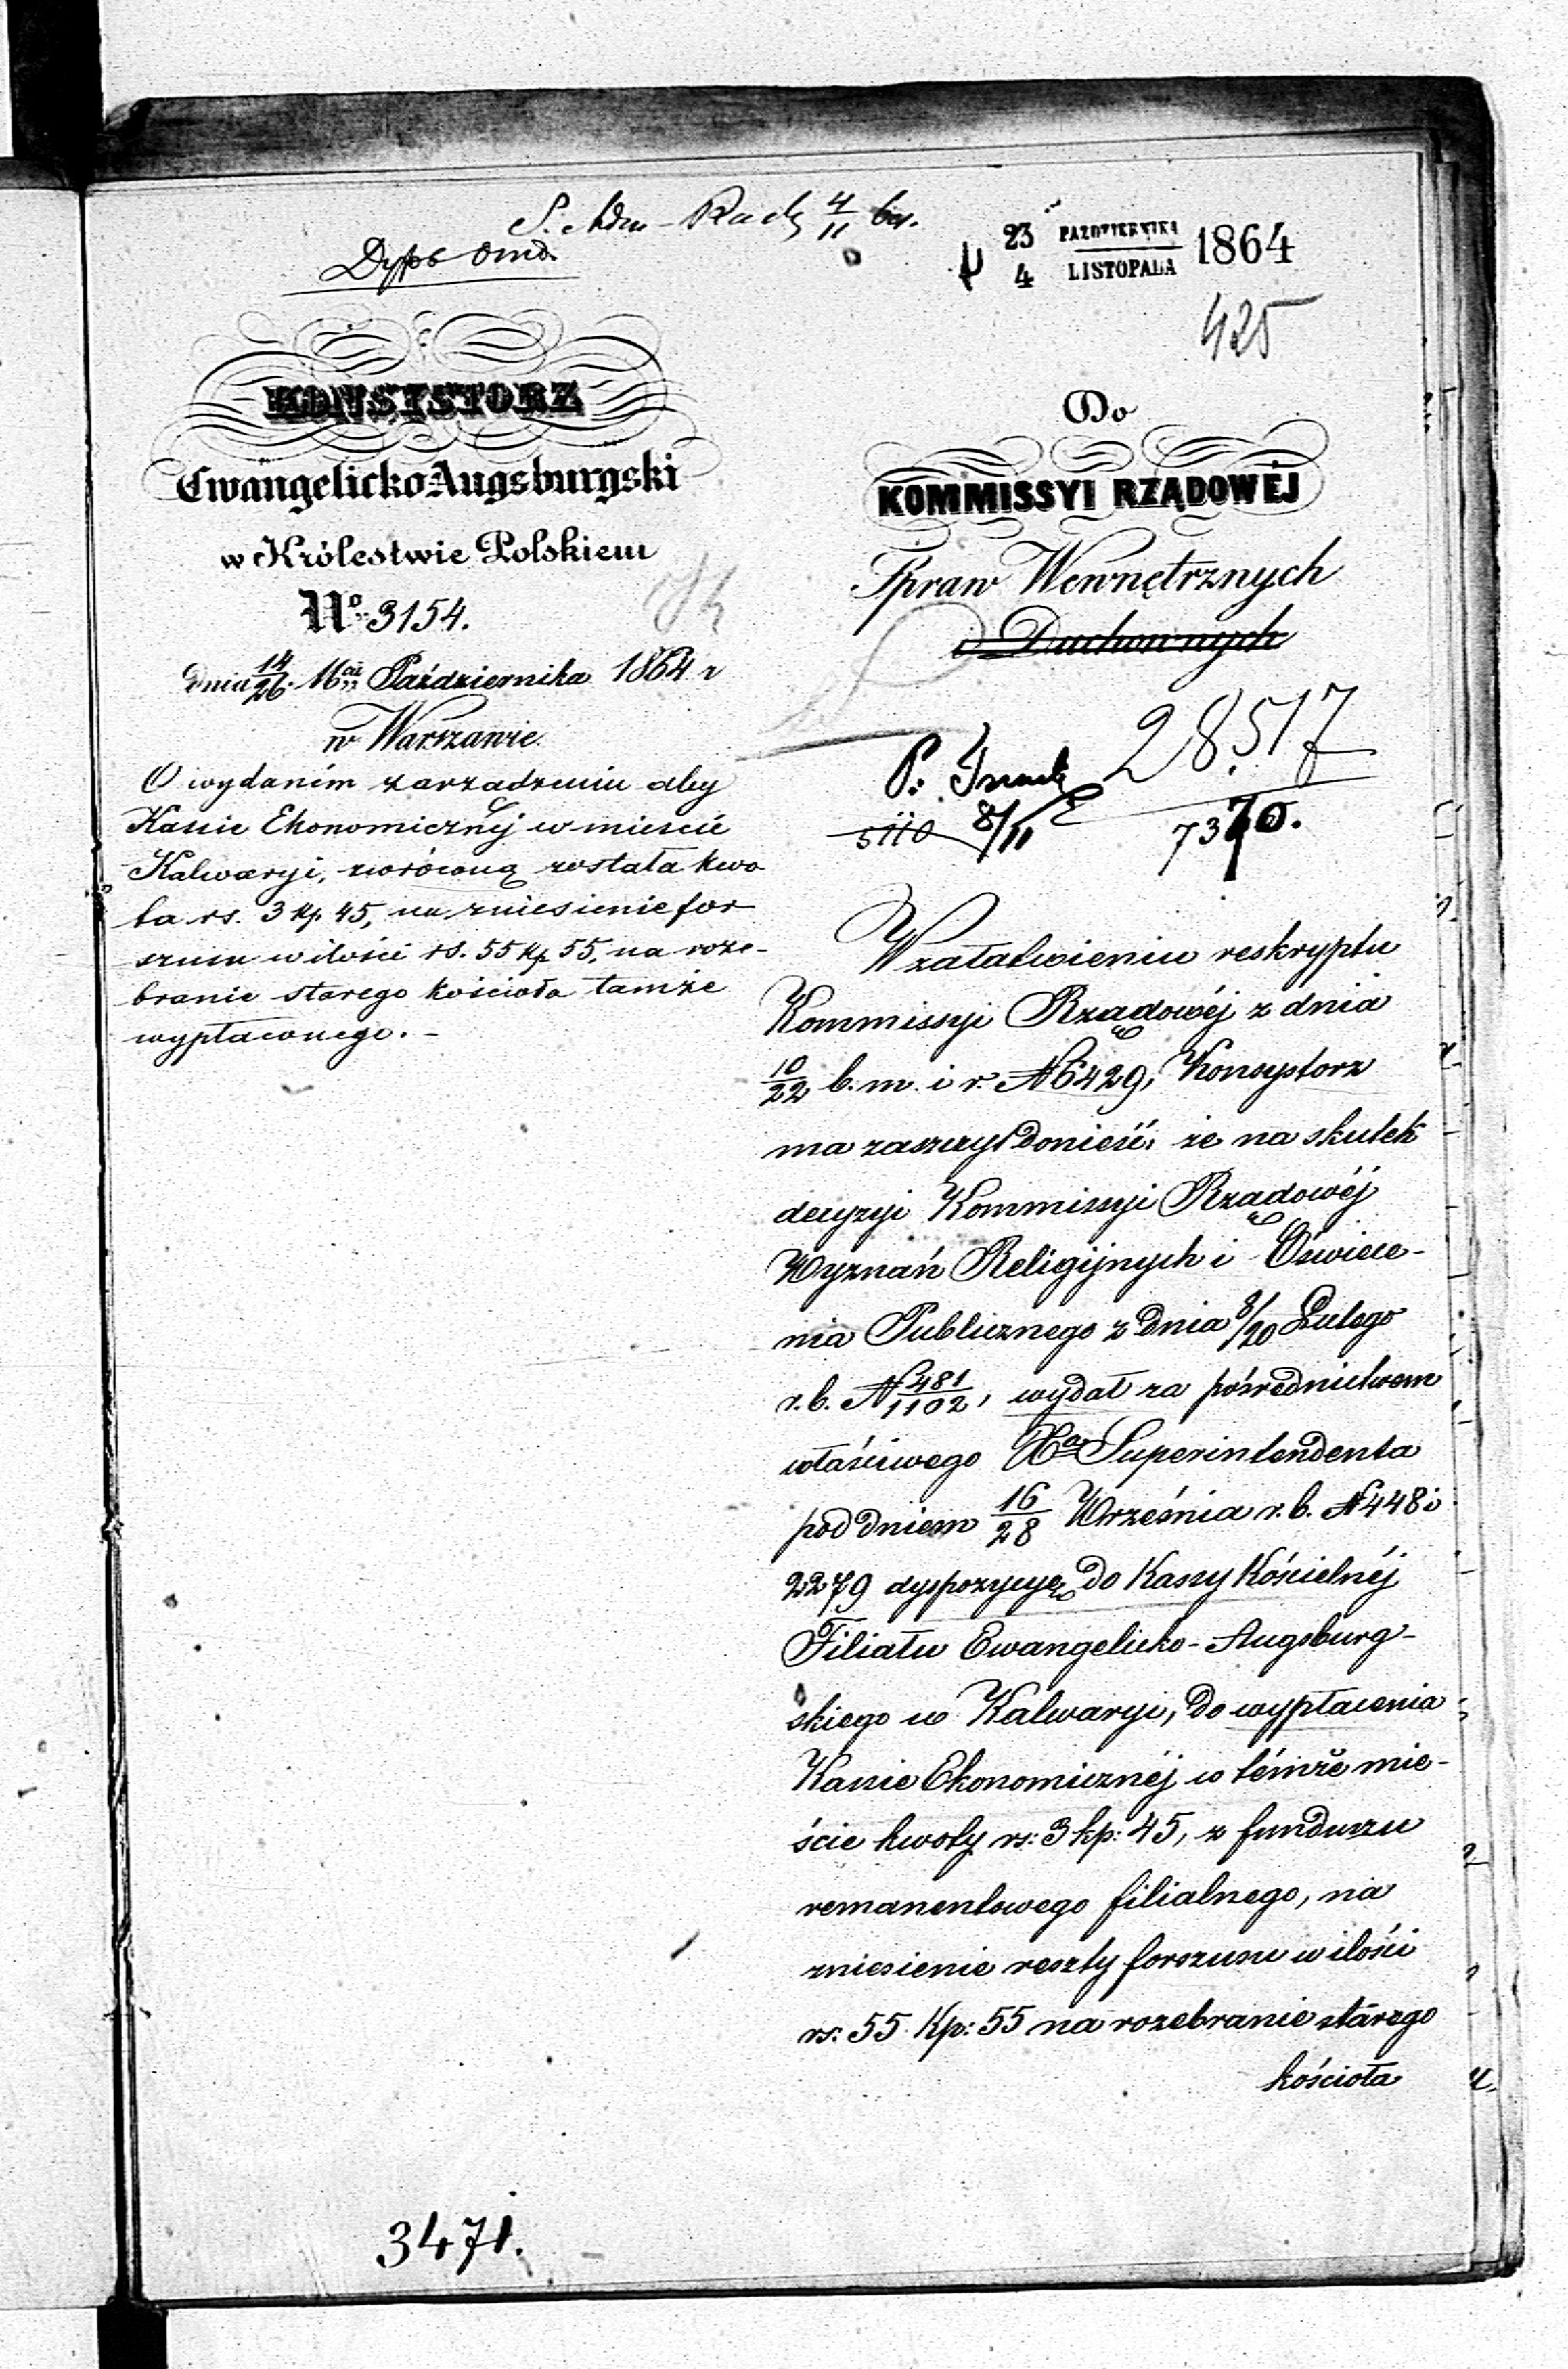 23 PAŹDZIERNIKA
4 LISTOPADA 1864
425
KONSYSTORZ
Ewangelicko Augsburgski
w Królestwie Polskiem
No 3154.
dnia 14/26 Października 1864 r
w Warszawie.
O wydaném zarządzeniu aby
Kassie Ekonomicznéj w mieście
Kalwaryi, zwróconą została kwo
ta rs. 3 kp. 45, na zniesienie for
szusu w ilości rs. 55 kp. 55, na roze-
branie starego kościoła tamże
wypłaconego. -
3471.
Do
KOMMISSYI RZĄDOWÉJ
Spraw Wewnętrznych
i Duchownych
28517
5110 8/11
W załatwieniu reskryptu
Kommissyi Rządowéj z dnia
10/22 b. m. i r. N 6429, Konsystorz
ma zaszczyt donieść, że na skutek
decyzyi Kommissyi Rządowéj
Wyznań Religijnych i Oświece-
nia Publicznego z dnia 8/20 Lutego
r. b. N 481/1102, wydał za pośrednictwem
właściwego Xa Superintendenta
pod dniem 16/28 Września r. b. N 448 i
2279 dyspozycyę do Kassy Kościelnéj
Filiału Ewangelicko-Augsburg-
skiego w Kalwaryi, do wypłacenia
Kassie Ekonomicznéj w témże mie-
ście kwoty rs: 3 kp: 45, z funduszu
remanentowego filialnego, na
zniesienie reszty forszusu w ilości
rs: 55 Kp: 55 na rozebranie starego
kościoła